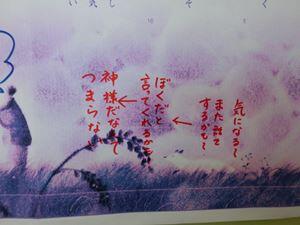 い気し　そ　く
10
5
気になる〜
また話で
するかも〜
ぼくだと
言ってくれるかも
神様だなんて
つまらない